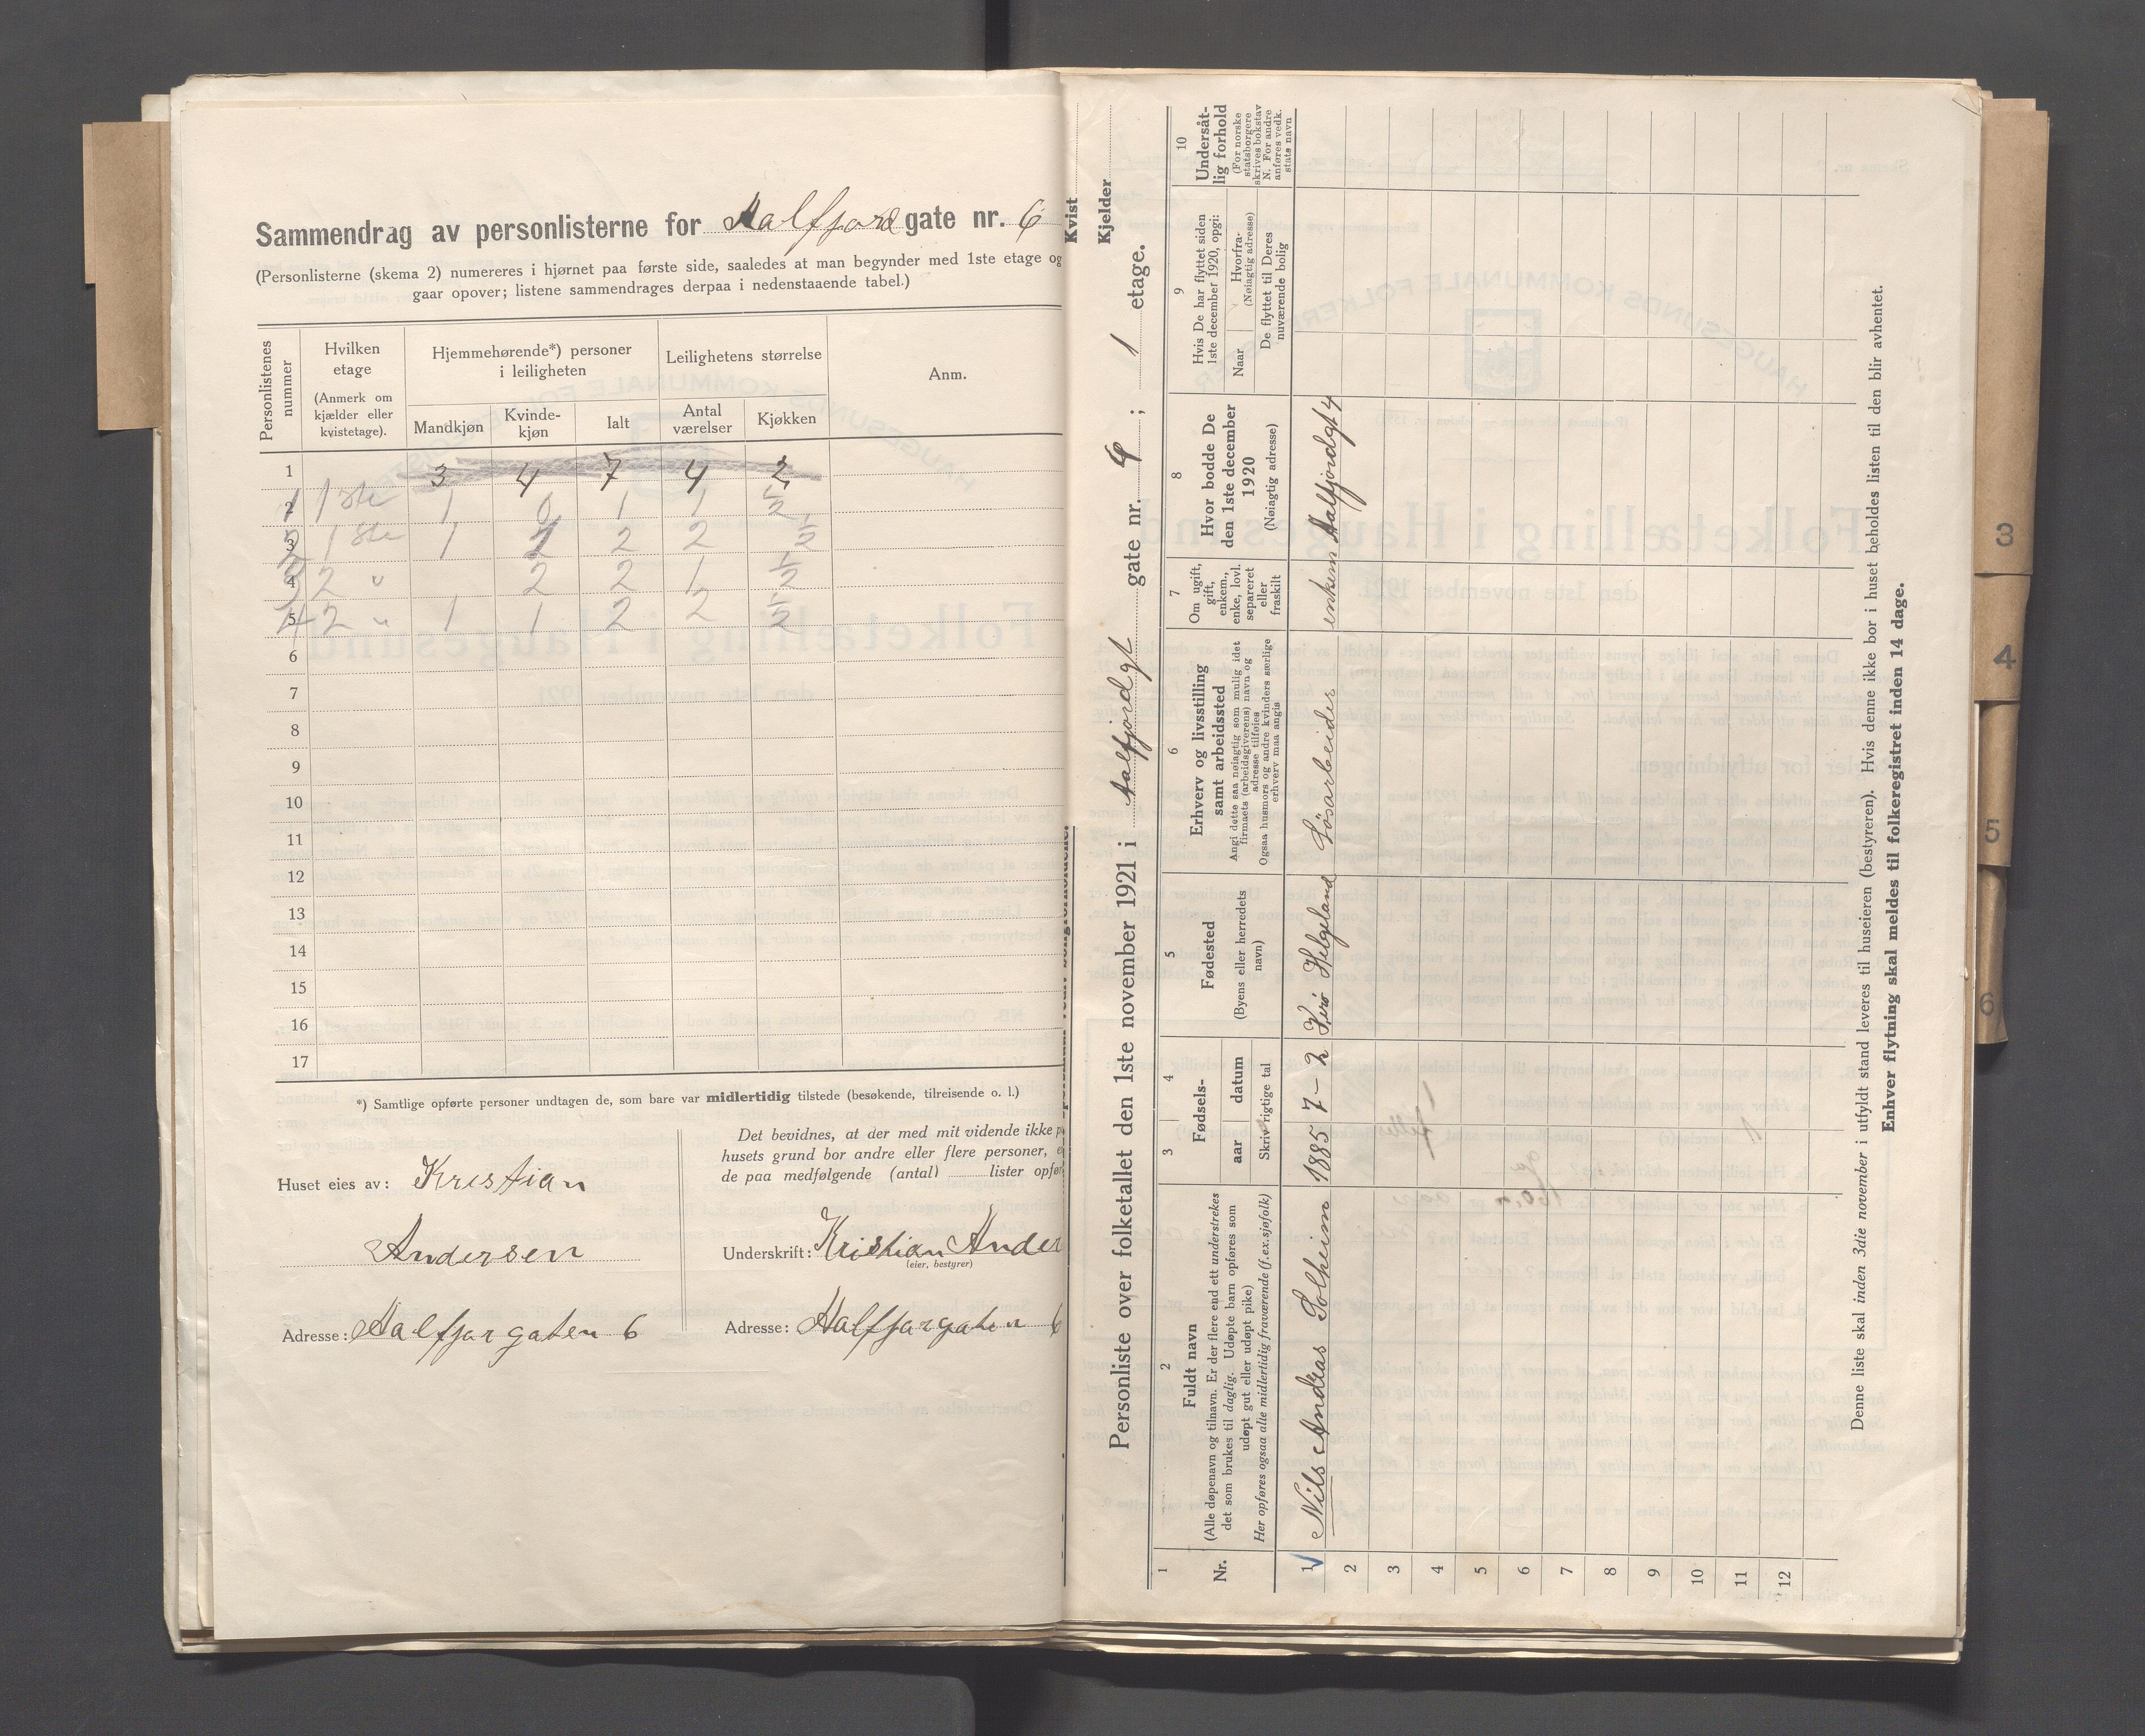 Sammendrag av personlisterne for Aalfjord gate nr. 6
(Personlisterne (skema 2) numereres i hjørnet paa første side, saaledes at man begynder med 1ste etage og
gaar opover; listene sammendrages derpaa i nedenstaaende tabel.)
Personlistenes nummer
Hvilken etage
(Anmerk om kjælder eller kvistetage).
Hjemmehørende*) personer i leiligheten
Leilighetens størrelse
Anm.
Mandkjøn
Kvinde-kjøn
Ialt
Antal værelser
Kjøkken
1 3 4 7 4 2
2 1 1ste 1 0 1 1 1/2
3 2 1ste 1 1 2 2 1/2
4 3 2 " 2 2 1 1/2
5 4 2 " 1 1 2 2 1/2
6
7
8
9
10
11
12
13
14
15
16
17
*) Samtlige opførte personer undtagen de, som bare var midlertidig tilstede (besøkende, tilreisende o. l.)
Huset eies av: Kristian
Andersen
Adresse: Aalfjorgaten 6
Det bevidnes, at der med mit vidende ikke p
husets grund bor andre eller flere personer, e
de paa medfølgende (antal) lister opfør
Underskrift: Kristian Ander
(eier, bestyrer)
Adresse: Aalfjorgaten 6
Kvist
Kjelder
Personliste over folketallet den 1ste november 1921 i Aalfjordgt gate nr. 4; 1 etage.
1
Nr.
2
Fuldt navn
(Alle døpenavn og tilnavn. Er der flere end ett understrekes
det som brukes til daglig. Udøpte barn opføres som
udøpt gut eller udøpt pike)
Her opføres ogsaa alle midlertidig fraværende (f.ex.sjøfolk)
3 4
Fødsels-
aar datum
Skriv rigtige tal
5
Fødested
(Byens eller herredets
navn)
6
Erhverv og livsstilling
samt arbeidssted
Angi dette saa nøiagtig som mulig idet
firmaets (arbeidsgiverens) navn og
adresse tilføies
Ogsaa husmors og andre kvinders særlige
erhverv maa angis
7
Om ugift,
gift,
enkem.,
enke, lovl.
separeret
eller
fraskilt
8
Hvor bodde De
den 1ste december
1920
(Nøiagtig adresse)
9
Hvis De har flyttet siden
1ste december 1920, opgi:
Naar
Hvorfra-
(Nøiagtig adresse)
De flyttet til Deres
nuværende bolig
10
Undersåt-
lig forhold
(For norske
statsborgere
skrives bokstav
N. For andre
anføres vedk.
stats navn
1 Nils Andreas Solheim 1885 7-2 Helgeland Løsarbeider enkem Aalfjordgt 4
2
3
4
5
6
7
8
9
10
11
12
Denne liste skal inden 3die november i utfyldt stand leveres til huseieren (bestyreren). Hvis denne ikke bor i huset beholdes listen til den blir avhentet.
Enhver flytning skal meldes til folkeregistret inden 14 dage.
3
4
5
6